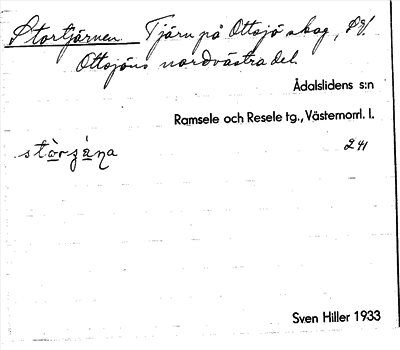 Stortjärnen Tjärn på Ottsjö skog, på
Ottsjöns nordvästra del.
Ådalslidens s:n
Ramsele och Resele tg., Västernorrl. l.
241
Sven Hiller 1933